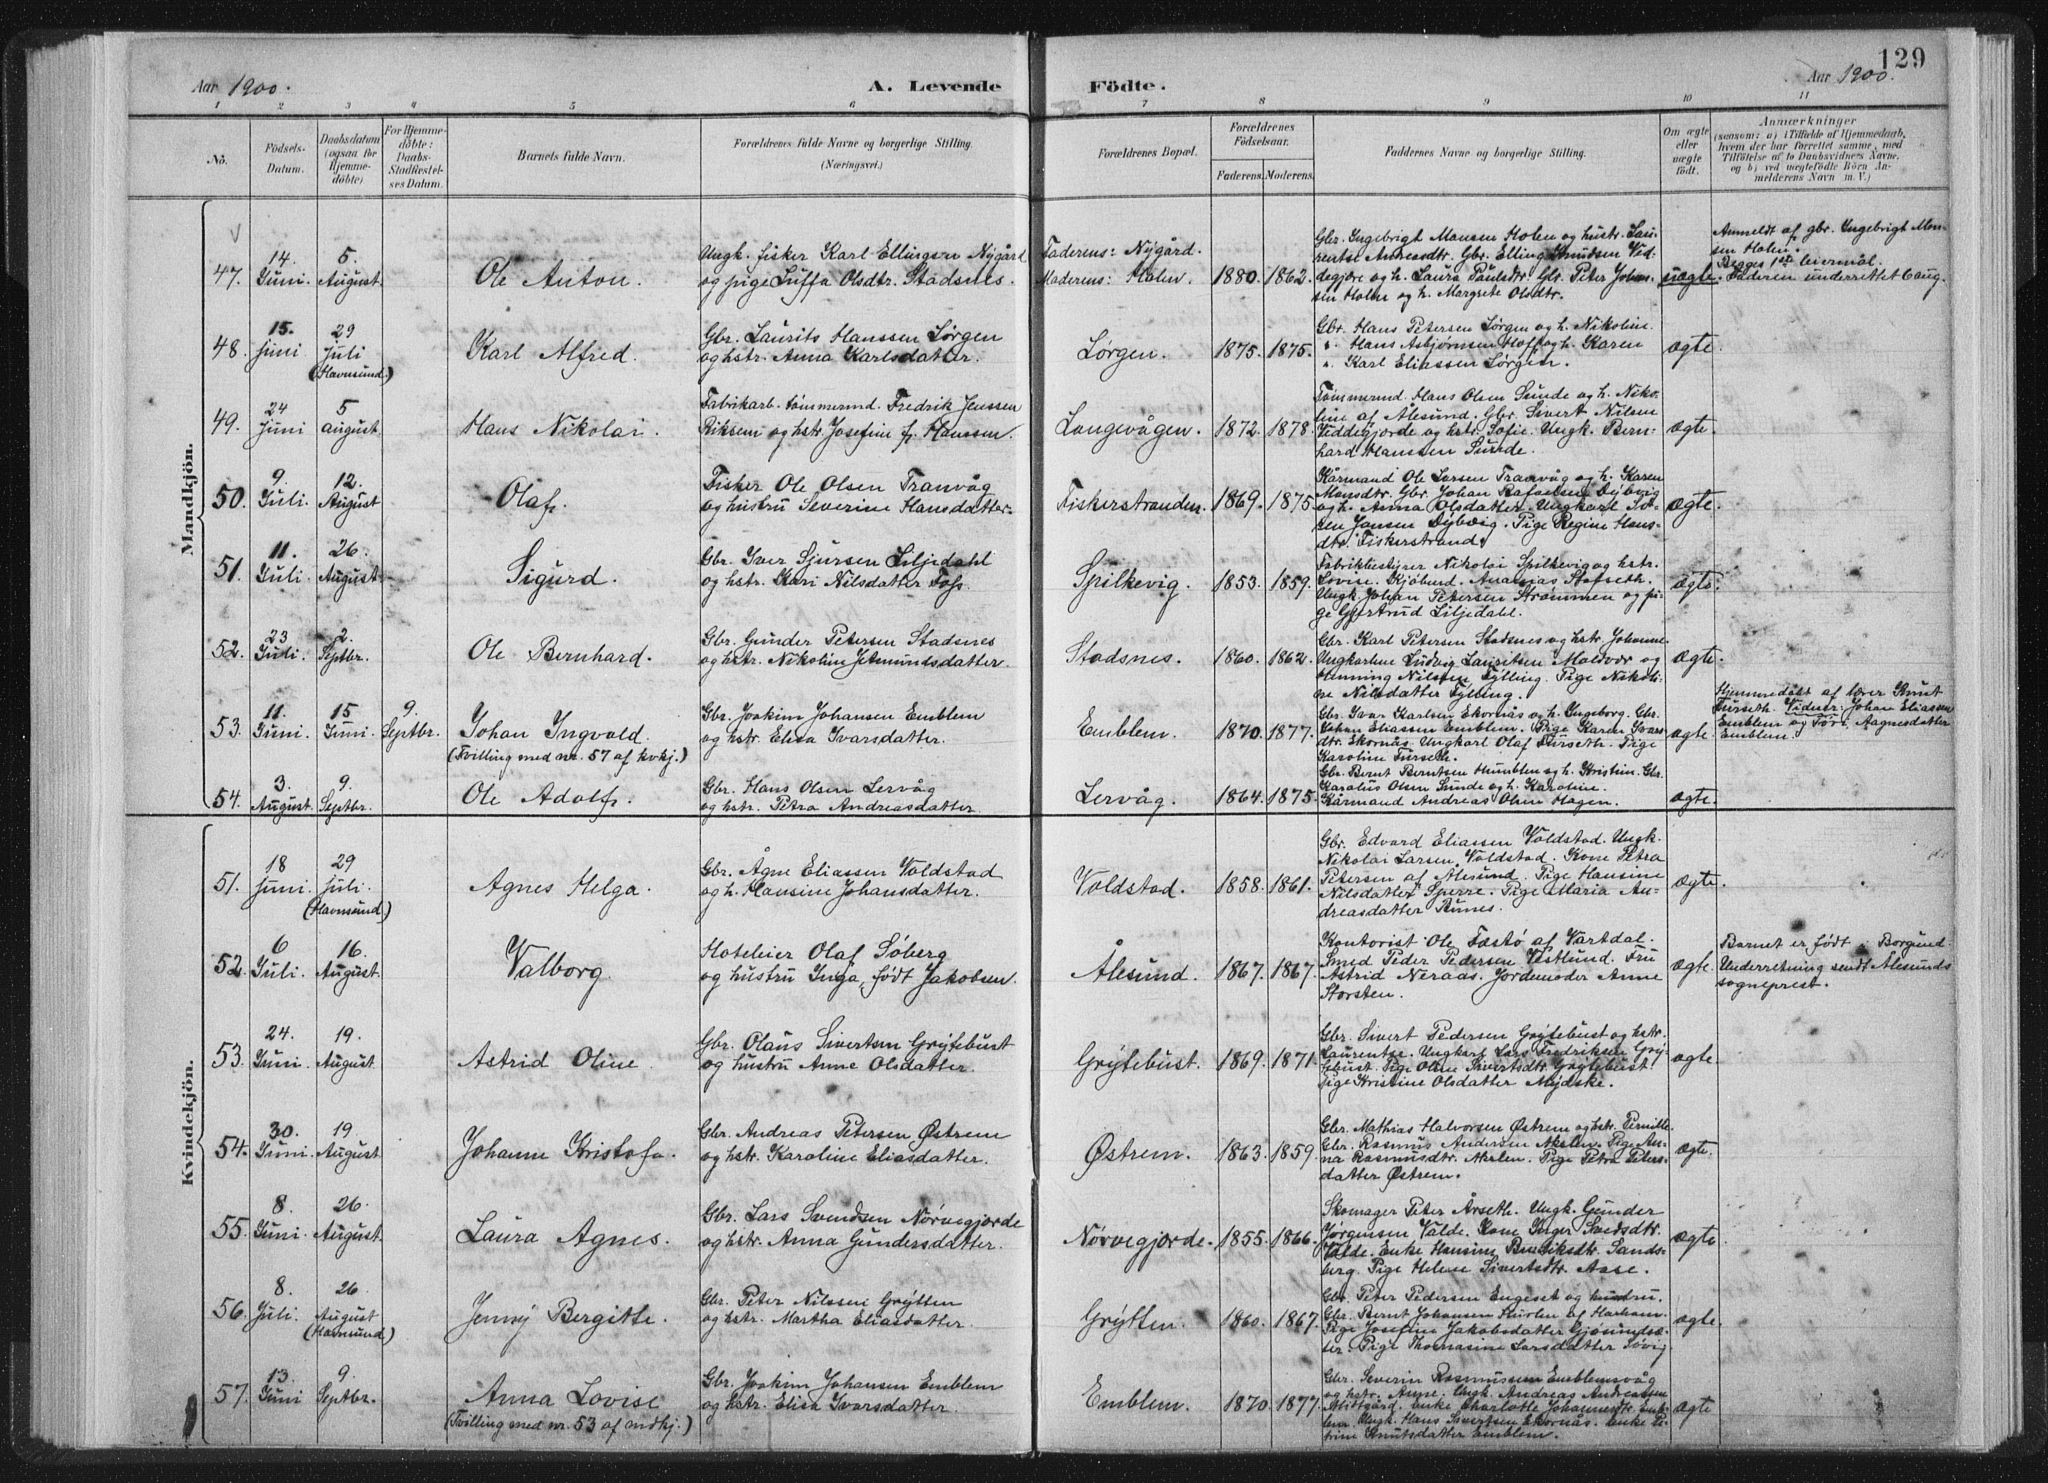 129
Aar 1900.
A. Levende
Födte.
Aar 1900.
1 2 3 4 5 6 7 8 9 10 11
No.
Födsels-Datum.
Daabsdatum (ogsaa for Hjemme-döbte)
For Hjemme-döbte: Daabs-Stadfæstel-ses Datum.
Barnets fulde Navn.
Forældrenes fulde Navne og borgerlige Stilling.
(Næringsvei.)
Forældrenes Bopæl.
Forældrenes Födselsaar.
Faderens. Moderens.
Faddernes Navne og borgerlige Stilling.
Om ægte eller uægte födt.
Anmærkninger
(saasom: a) i Tilfælde af Hjemmedaab,
hvem der har forrettet samme, med
Tilföielse af to Daabsvidners Navne,
og b) ved uægtefödte Börn An-
melderens Navn m. V.)
Mandkjön.
47. 14. Juni. 5. August. Ole Anton.
Ungk. fisker Karl Ellingsen Nygård
og pige Luffa Olsdtr. Stadsnes.
Faderens: Nygård.
Moderens: Holen.
1880. 1862.
Gbr. Ingebrigt Monsen Holen og hustr. Lau-
rentse Andreasdtr. Gbr. Elling Knudsen Ved-
degjære og h. Laura Paulsdtr. Gbr. Peter Johan-
sen Holen og h. Margrete Olsdtr.
uægte.
Anmeldt af gbr. Ingebrigt Mon-
sen Holen.
Begges 1ste leiermål.
Faderen underrettet 6 aug.
48. 15. Juni 29 Juli (Havnsund.) Karl Alfred.
Gbr. Laurits Hanssen Lørgen
og hstr. Anna Karlsdatter.
Lørgen. 1875. 1875.
Gbr. Hans Petersen Lørgen og h. Nikoline.
" Hans Asbjørnsen Hoff og h. Karen
" Karl Eliassen Lørgen.
ægte.
49. 24 Juni 5 august. Hans Nikolai.
Fabrikarb. tømmermd. Fredrik Jenssen
Riksem og hstr. Josefine f. Hanssen.
Langevågen. 1872. 1878.
Tømmermd Hans Olsen Sunde og h. Niko-
line af Ålesund. Gbr. Sivert Nilsen
Veddegjærde og hstr. Sofie. Ungk. Bern-
hard Hanssen Sunde.
ægte.
50. 9. Juli. 12. August Olaf.
Fisker Ole Olsen Tranvåg
og hustru Severine Hansdatter.
Fiskerstranden. 1869. 1875.
Kårmand Ole Larsen Tranvåg og h. Karen
Monsdtr. Gbr. Johan Rafaelsen Dybvig
og h. Anna Olsdatter. Ungkarl
Jansen Dybvig. Pige Regine Hans-
dtr. Fiskerstrand.
ægte.
51. 11. Juli. 26. August. Sigurd.
Gbr. Iver Sjursen Liljedahl
og hstr. Kari Nilsdatter Fos.
Spilkevig. 1853. 1859.
Fabrikbestyrer Nikolai Spilkevig og hstr.
Lovise. Kjøbmd. Ananias Stafseth.
Ungk. Johan Petersen Strømmen og pi-
ge Gjertrud Liljedahl.
ægte.
52. 23 Juli. 2. Septbr. Ole Bernhard.
Gbr. Gunder Petersen Stadsnes
og hstr. Nikoline Jetmundsdatter.
Stadsnes. 1860. 1862.
Gbr. Karl Petersen Stadsnes og hstr. Johanne.
Ungkarlene Ludvig Lauritsen Moldvær og
Henning Nilssen Fylling. Pige Nikoli-
ne Nilsdatter Fylling.
ægte.
53. 11. Juni. 15 Juni. 9. Septbr. Johan Ingvald.
(Tvilling med nr. 57 af kvkj.)
Gbr. Joakim Johansen Emblem
og hstr. Elisa Ivarsdatter.
Emblem. 1870. 1877.
Gbr. Ivar Karlsen Ekornås og h. Ingeborg. Gbr.
Johan Eliassen Emblem. Pige Karen Ivars-
dtr. Ekornås. Ungkarl Olaf Furseth. Pige
Karoline Furseth.
ægte.
Hjemmedøbt af lærer Knut
Furseth. Vidner: Johan Eliassen
Emblem og Aagnesdatter
Emblem.
54. 3. August. 9. Septbr. Ole Adolf.
Gbr. Hans Olsen Lervåg
og hstr. Petra Andreasdatter.
Lervåg. 1864. 1875.
Gbr. Bernt Berntsen Humblen og h. Kristine. Gbr.
Karolus Olsen Sunde og h. Karoline.
Kårmand Andreas Olsen Hagen.
ægte.
Kvindekjön.
51. 18 Juni. 29 Juli. (Havnsund.) Agnes Helga.
Gbr. Ågne Eliassen Voldstad
og h. Hansine Johansdatter.
Voldstad. 1858. 1861.
Gbr. Edvard Eliassen Voldstad. Ungk.
Nikolai Larsen Voldstad. Kone Petra
Petersen af Ålesund. Pige Hansine
Nilsdatter Sperre. Pige Maria An-
dreasdatter Bunes.
ægte.
52. 6 Juli. 16. August. Valborg.
Hoteleier Olaf Søberg
og hustru Inga, født Jakobsen.
Ålesund. 1867. 1867.
Kontorist Ole Fæstø af Vartdal.
Smed Peder Pedersen Vestlund. Fru
Astrid Neraas. Jordemoder Anne
Storsten.
ægte.
Barnet er født i Borgund.
Underretning sendt Ålesunds
sogneprest.
53. 24. Juni. 19. August Astrid Oline.
Gbr. Olaus Sivertsen Grytebust
og hustru Anne Olsdatter.
Grytebust. 1869. 1871.
Gbr. Sivert Pedersen Grytebust og hstr.
Laurentse. Ungkarl Lars Fredriksen Gry-
tebust. Pige Oline Sivertsdtr. Grytebust.
Pige Kristine Olsdatter Mydske.
ægte
54. 30. Juni. 19 August. Johanne Kristofa.
Gbr. Andreas Petersen Østrem
og hstr. Karoline Eliasdatter.
Østrem. 1863. 1859.
Gbr. Mathias Halvorsen Østrem og hstr. Pernille.
Gbr. Rasmus Andersen Akslen. Pige An-
na Rasmusdtr. Akslen. Pige Petra Peters-
datter Østrem.
ægte.
55. 8. Juni. 26. August. Laura Agnes.
Gbr. Lars Svendsen Nørvegjorde
og hstr. Anna Gundersdatter.
Nørvegjorde. 1855. 1866.
Skomager Peter Årseth. Ungk. Gunder
Jørgensen Valde. Kone Inger
Valde. Enke Hansine Sands-
berg. Pige Helene Sivertsdtr. Aase.
ægte
56. 8. Juli. 26 August (Havnsund) Jenny Bergitte.
Gbr. Peter Nilssen Grytten
og hstr. Martha Eliasdatter.
Grytten. 1860. 1867.
Gbr. Peter Pedersen Engeset og hustru.
Gbr. Bernt Johansen Hurlen af Harham.
Pige Josefine Jakobsdatter Gjøsundsæ-
ter. Pige Thomasine Larsdatter Søvig.
ægte.
57. 13. Juni 9. Septbr. Anna Lovise
(Tvilling med nr. 53 af mdkj.)
Gbr. Joakim Johansen Emblem
og hstr. Elisa Ivarsdatter.
Emblem. 1870. 1877.
Gbr. Severin Rasmussen Emblemsvåg
og hstr. Anne. Ungk. Andreas Andreassen
Midtgård. Enke Charlotte Johannesdtr. Em-
blem. Ungk. Hans Sivertsen Ekornås. Enke Pe-
trine Knutsdatter Emblem.
ægte